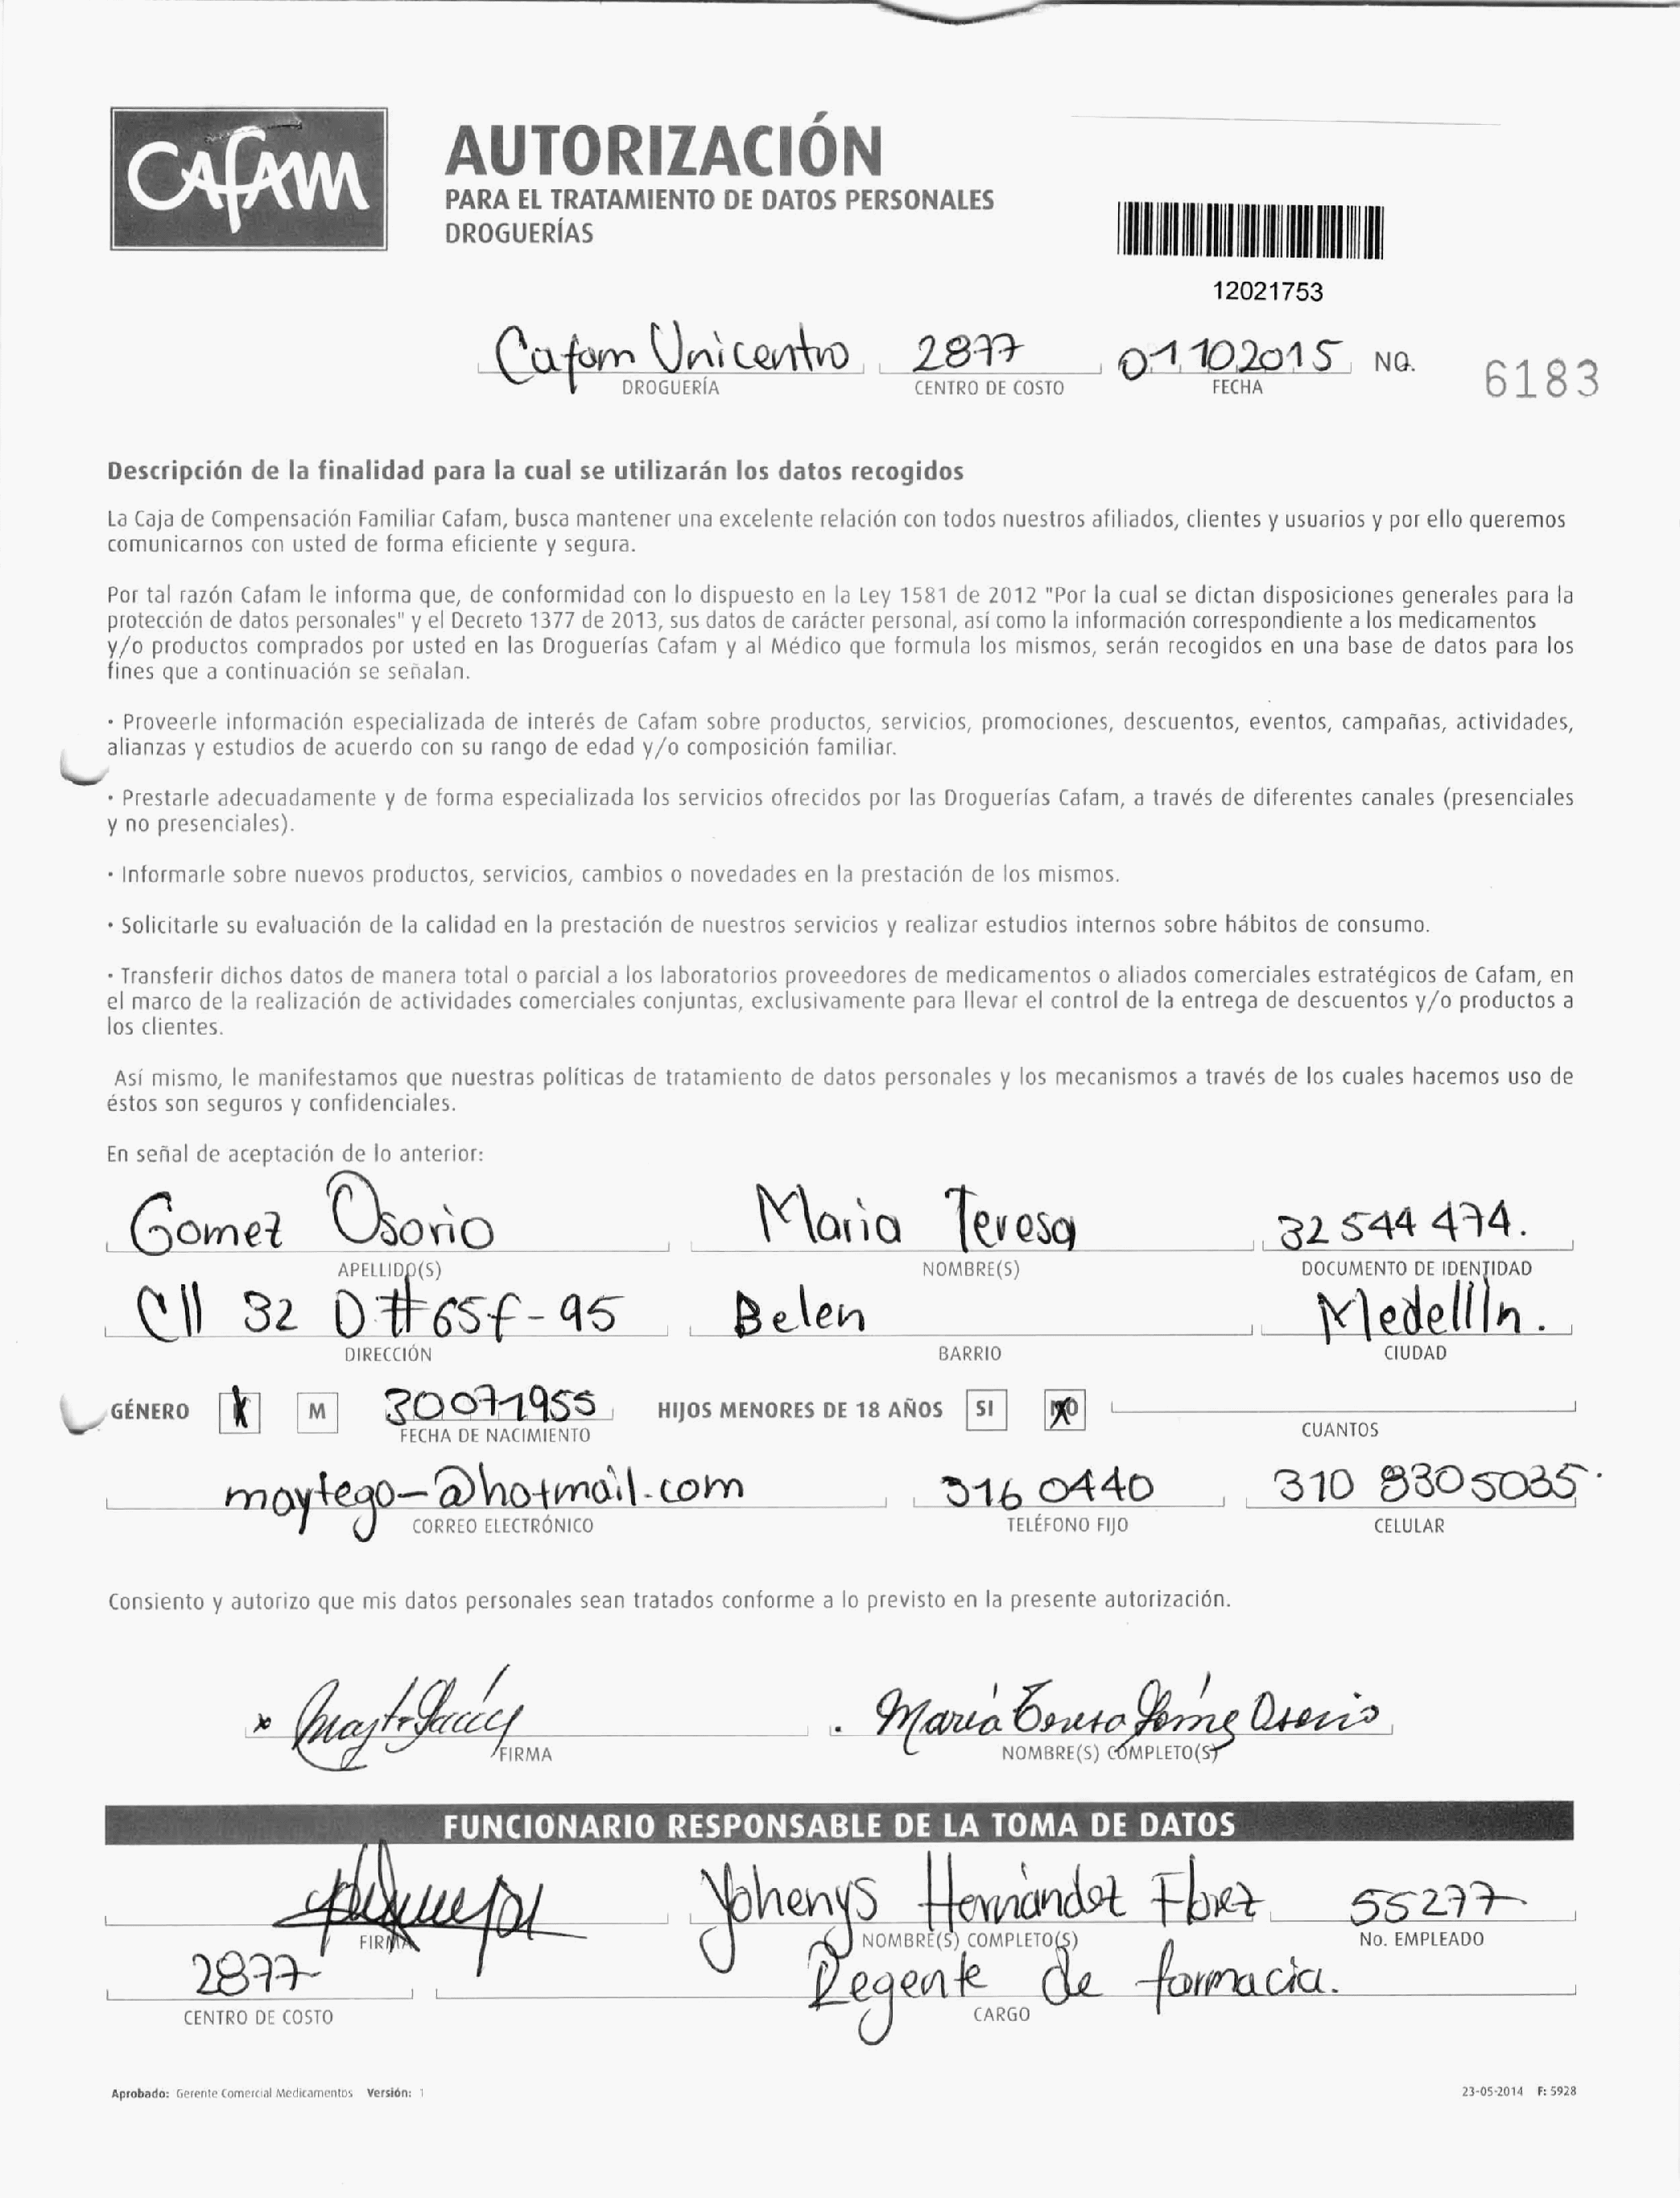 CAFAM
AUTORIZACIÓN
PARA EL TRATAMIENTO DE DATOS PERSONALES
DROGUERÍAS
12021753
Cafam Unicentro 2877 01102015 NO. 6183
DROGUERÍA CENTRO DE COSTO FECHA
Descripción de la finalidad para la cual se utilizarán los datos recogidos
La Caja de Compensación Familiar Cafam, busca mantener una excelente relación con todos nuestros afiliados, clientes y usuarios y por ello queremos
comunicarnos con usted de forma eficiente y segura.
Por tal razón Cafam le informa que, de conformidad con lo dispuesto en la Ley 1581 de 2012 "Por la cual se dictan disposiciones generales para la
protección de datos personales" y el Decreto 1377 de 2013, sus datos de carácter personal, así como la información correspondiente a los medicamentos
y/o productos comprados por usted en las Droguerías Cafam y al Médico que formula los mismos, serán recogidos en una base de datos para los
fines que a continuación se señalan.
· Proveerle información especializada de interés de Cafam sobre productos, servicios, promociones, descuentos, eventos, campañas, actividades,
alianzas y estudios de acuerdo con su rango de edad y/o composición familiar.
· Prestarle adecuadamente y de forma especializada los servicios ofrecidos por las Droguerías Cafam, a través de diferentes canales (presenciales
y no presenciales).
· Informarle sobre nuevos productos, servicios, cambios o novedades en la prestación de los mismos.
· Solicitarle su evaluación de la calidad en la prestación de nuestros servicios y realizar estudios internos sobre hábitos de consumo.
· Transferir dichos datos de manera total o parcial a los laboratorios proveedores de medicamentos o aliados comerciales estratégicos de Cafam, en
el marco de la realización de actividades comerciales conjuntas, exclusivamente para llevar el control de la entrega de descuentos y/o productos a
los clientes.
Así mismo, le manifestamos que nuestras políticas de tratamiento de datos personales y los mecanismos a través de los cuales hacemos uso de
éstos son seguros y confidenciales.
En señal de aceptación de lo anterior:
Gomez Osorio Maria Teresa 32 544 474.
APELLIDO(S) NOMBRE(S) DOCUMENTO DE IDENTIDAD
Cll 32 D # 65f-95 Belen Medellín.
DIRECCIÓN BARRIO CIUDAD
GÉNERO M 30071955 HIJOS MENORES DE 18 AÑOS SI NO
FECHA DE NACIMIENTO CUANTOS
maytego-@hotmail.com 316 0440 310 8305035.
CORREO ELECTRÓNICO TELÉFONO FIJO CELULAR
Consiento y autorizo que mis datos personales sean tratados conforme a lo previsto en la presente autorización.
María Teresa Gómez Osorio
FIRMA NOMBRE(S) COMPLETO(S)
FUNCIONARIO RESPONSABLE DE LA TOMA DE DATOS
Yohenys Hernández Florez 55277
FIRMA NOMBRE(S) COMPLETO(S) No. EMPLEADO
2877 Regente de farmacia.
CENTRO DE COSTO CARGO
Aprobado: Gerente Comercial Medicamentos Versión: 1 23-05-2014 F: 5928